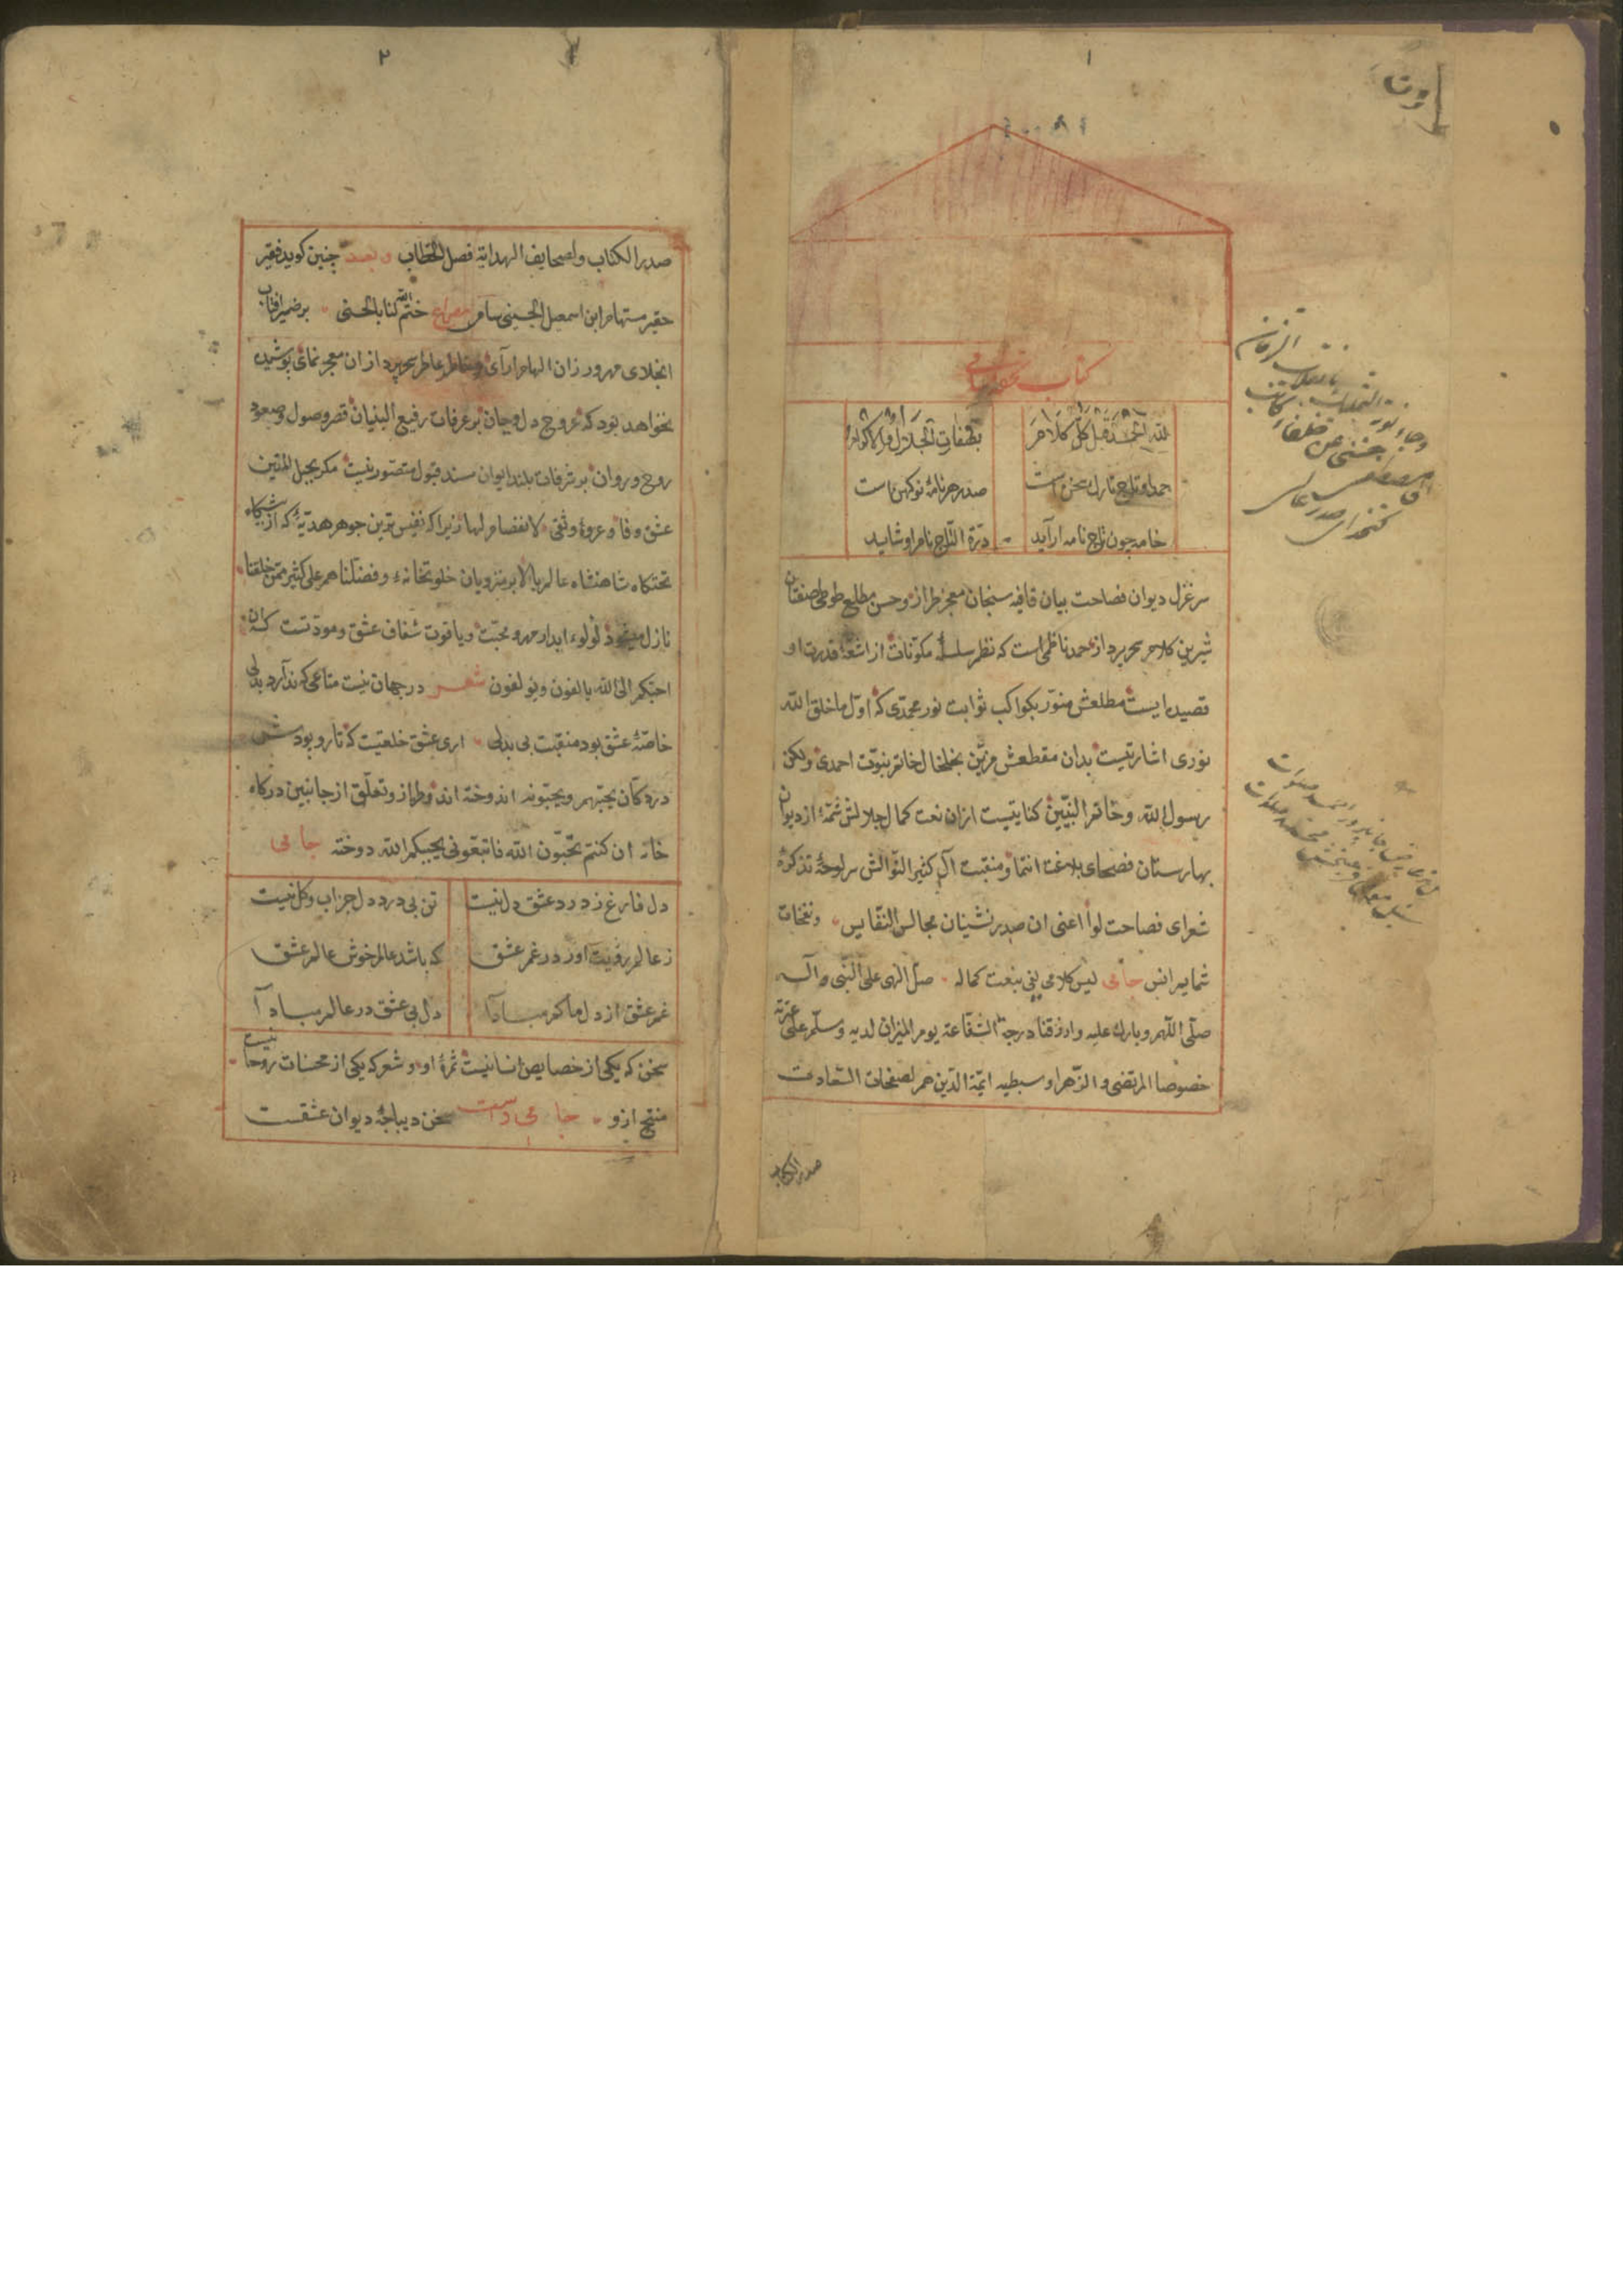 ١
كتاب تحفه سامى
لله الحمد قبل كل كلام
بصفات الجلال والاكرام
حمد او تاج تارك سخن است
صدر هر نامۀ نو كهن است
خامه چون تاج نامه آرايد
درة التاج نام او شايد
سر غزل ديوان فصاحت بيان قافيه سنجان معجز طراز وحسن مطلع طوطى صفتان
شيرين كلام سحر پرداز حمد ناظمى است كه نظم سلسلۀ مكونات از اشعۀ قدرت او
قصيده ايست مطلعش منور بكواكب ثوابت نور محمدى كه اول ما خلق الله
نورى اشارتيست بدان مقطعش مزين بخلخال خاتم نبوت احمدى ولكن
رسول الله وخاتم النبيين كنايتيست ازان نعت كمال جلالش شمۀ از ديوان
بهارستان فصحاى بلاغت انتما ومنقبت آل كثير النوالش سرلوحۀ تذكرۀ
شعراى فصاحت لوا اعنى ان صدر نشينان مجالس النفايس ونفحات
شمايم انس جامى ليس كلامى يفى بنعت كماله صل الهى على النبى وآله
صلى اللهم وبارك عليه وارزقنا درجة الشفاعة يوم الميزان لديه وسلم على عترته
خصوصا المرتضى والزهرا وسبطيه ائمة الذين هم لصفحات السعادت
صدر الكتاب
٢
صدر الكتاب ولصحايف الهداية فصل الخطاب وبعد چنين كويد فقير
حقير مستهام ابن اسمعيل الحسينى سام مصراع ختم الله لنا بالحسنى بر ضمير آفتاب
انجلاى مهرورزان الهام آراى وخاطر عاطر سحر پردازان معجز نماى پوشيده
نخواهد بود كه عروج دل وجان بر غرفات رفيع البنيان قصر وصول وصعود
روح وروان بر شرفات بلند ايوان مسند قبول متصور نيست مكر بحبل المتين
عشق وفا وعروۀ وثقى لا انفصام لها زيرا كه نفيس ترين جوهر هديۀ كه از پيشكاه
تختكاه شاهنشاه عالم بالا بر منزويان خلوتخانۀ وفضلناهم على كثير ممن خلقنا
نازل ميشود لولوء ابدار مهر ومحبت وياقوت شفاف عشق ومودتست كه ان
احبكم الى الله يالفون ويولفون شعر در جهان نيست متاعى كه ندارد بدلى
خاصۀ عشق بود منقبت بى بدلى ارى عشق خلعتيست كه تار وپودش
در دكان يحبهم ويحبونه اندوخته اند وطراز وتعلق از جانبين در كاه
خانۀ ان كنتم تحبون الله فاتبعونى يحببكم الله دوخته جامى
دل فارغ ز درد عشق دل نيست
تن بى درد دل جز اب وكل نيست
ز عالم رويت اور در غم عشق
كه باشد عالم خوش عالم عشق
غم عشق از دل ما كم مبادا
دل بى عشق در عالم مبادا
سخن كه يكى از خصايص انسانيست ثمرۀ او وشعر كه يكى از محسنات روحانيست
منتج ازو جامى راست سخن ديباچۀ ديوان عشقست